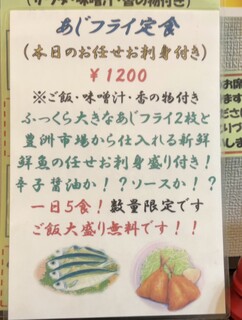 あじフライ定食
(本日のお任せお刺身付き)
￥1200
※ご飯・味噌汁・香の物付き
ふっくら大きなあじフライ2枚と
豊洲市場から仕入れる新鮮
鮮魚の任せお刺身盛り付き!
辛子醤油か!?ソースか!?
一日5食!数量限定です
ご飯大盛り無料です!!